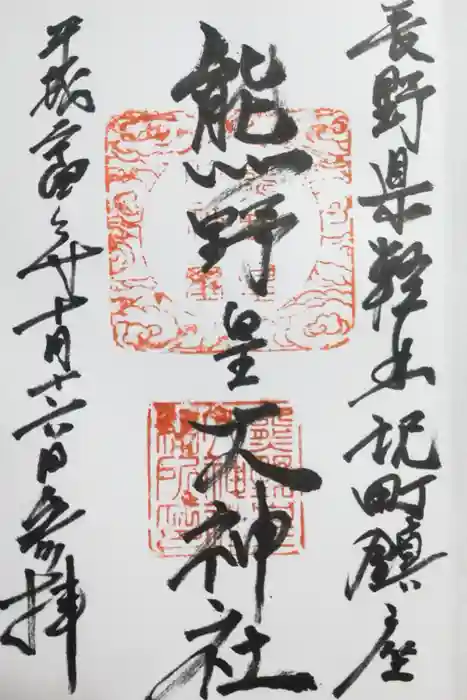 長野県軽井沢町鎮座
熊野皇大神社
平成 年十月十六日参拝